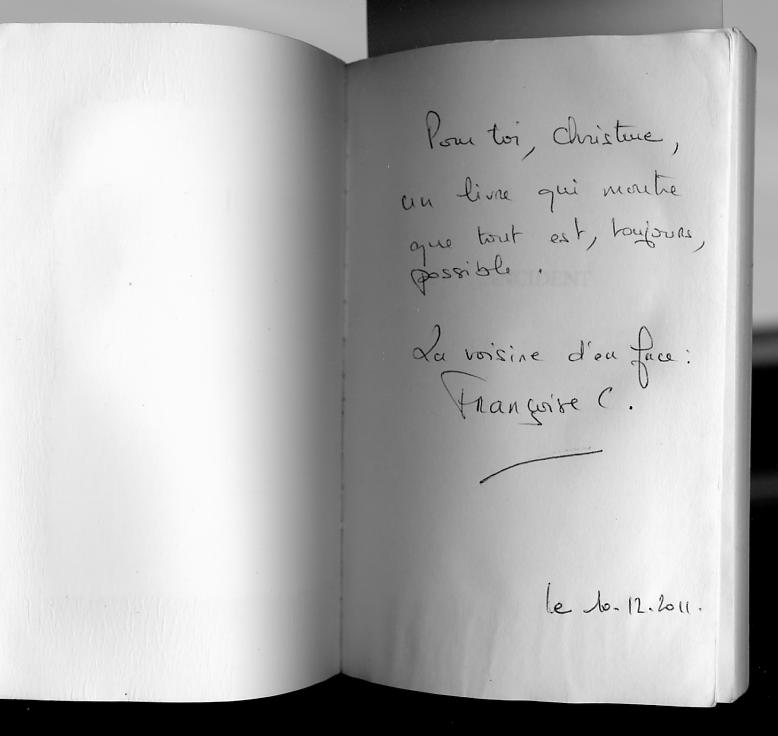 Pour toi, Christine,
un livre qui montre
que tout est, toujours,
possible.
INCIDENT
La voisine d'en face :
Françoise C.
le 10.12.2011.